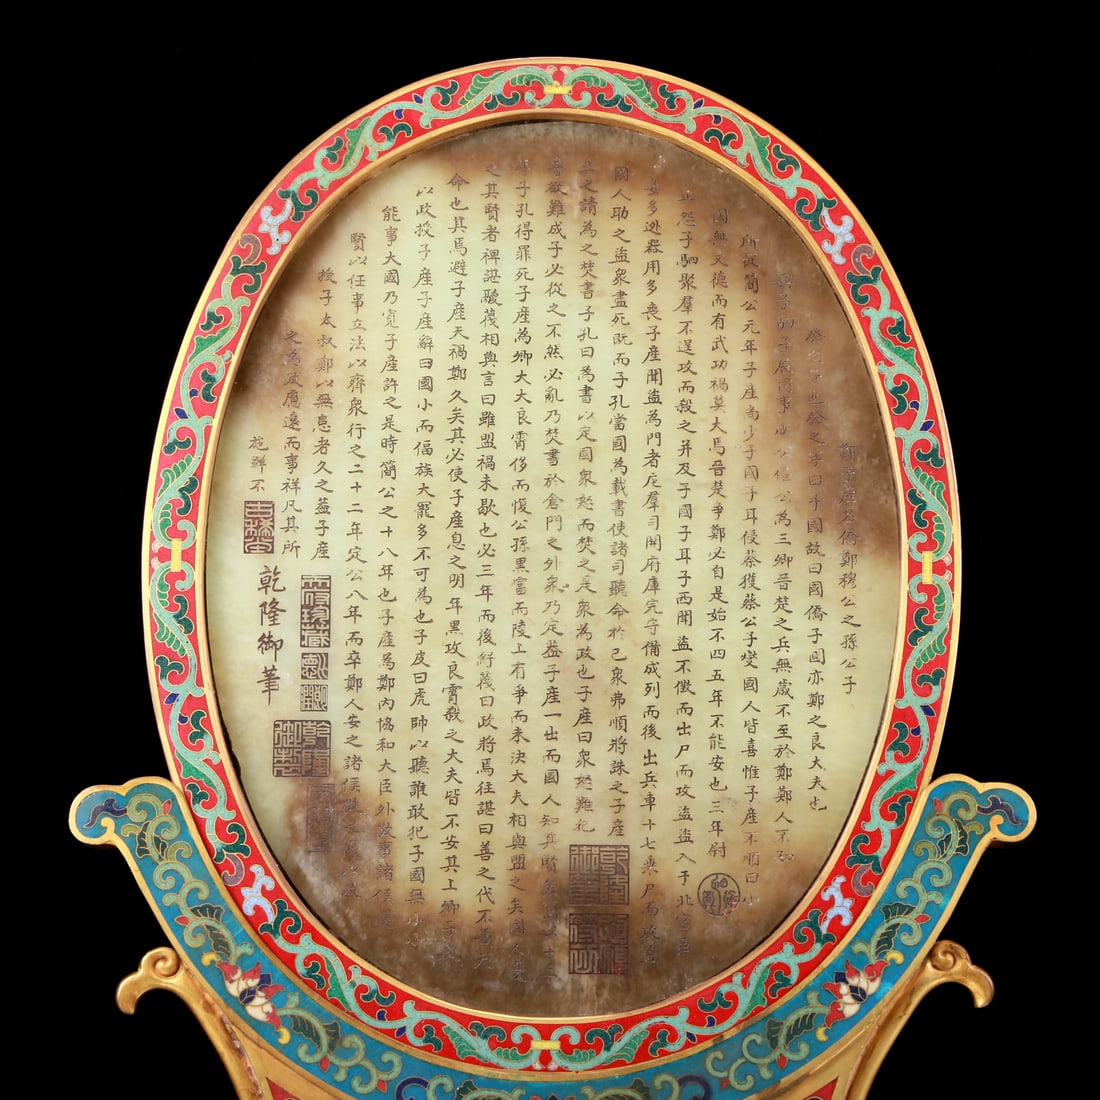 鄭子產名僑鄭穆公之孫公子
發之子也發之字曰子國故曰國僑子國亦鄭之良大夫也
公為三卿晉楚之兵無歲不至於鄭鄭人不知
所從簡公元年子產尚少子國子耳侵蔡獲蔡公子燮國人皆喜惟子產不順曰小
國無文德而有武功禍莫大焉晉楚爭鄭必自是始不四五年不能安也三年尉
止怨子駟聚羣不逞攻而殺之并及子國子耳子西聞盜不儆而出尸而攻盜盜入于北宮
多逃器用多喪子產聞盜為門者庀羣司閉府庫完守備成列而後出兵車十七乘尸而攻盜
國人助之盜眾盡死既而子孔當國為載書使諸司聽命於己眾弗順將誅之子產
止之請為之焚書子孔曰為書以定國眾怒而焚之是眾為政也子產曰眾怒難犯
專欲難成子必從之不然必亂乃焚書於倉門之外眾乃定蓋子產一出而國人知其賢矣
子孔得罪死子產為卿大夫良霄侈而愎公孫黑富而陵上有爭而未決大夫相與盟之矣
之其賢者裨諶鬷蔑相與言曰雖盟禍未歇也必三年而後紓蔑曰政將焉往諶曰善之代不善天
命也其焉避子產天禍鄭久矣其必使子產息之明年黑攻良霄殺之大夫皆不安其上卿子皮
以政授子產子產辭曰國小而偪族大寵多不可為也子皮曰虎帥以聽誰敢犯子國無小小
能事大國乃寬子產許之是時簡公之十八年也子產為鄭內協和大臣外敬事諸侯
賢以任事立法以齊眾行之二十二年定公八年而卒鄭人安之諸侯
授子太叔鄭以無患者久之蓋子產
之為政慮遠而事祥凡其所
施鮮不
乾隆御筆